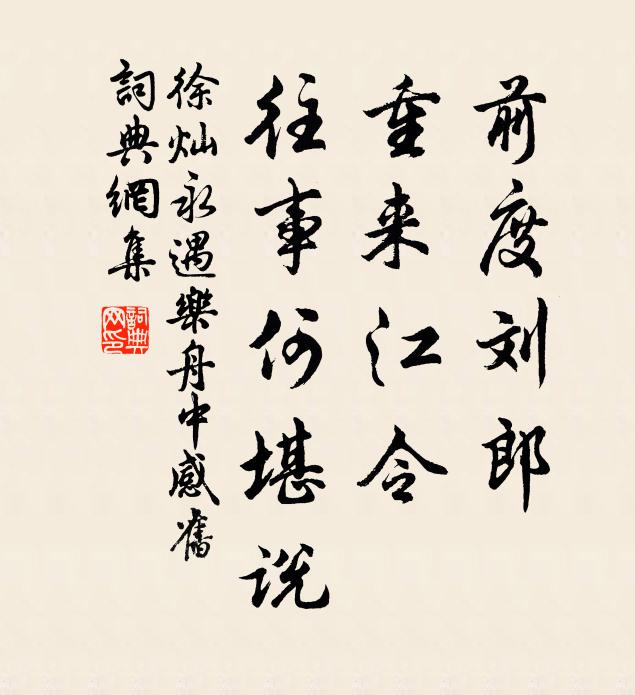 前度刘郎
重来江令
往事何堪说
徐灿永遇樂舟中感舊
詞典網集
詞典
网印